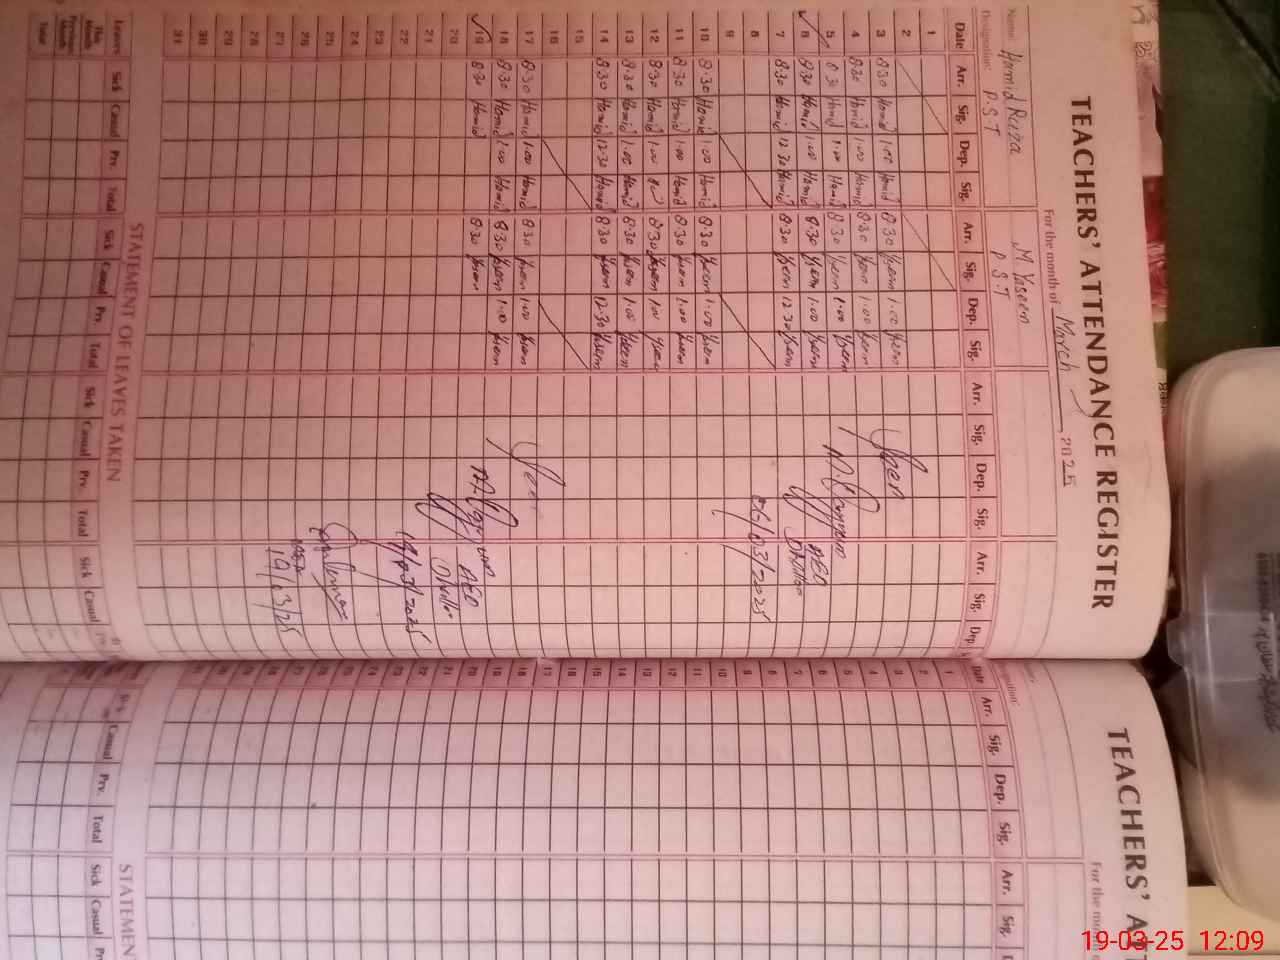 TEACHERS' ATTENDANCE REGISTER
For the month of March 2025
Name: Hamid Raza M. Yaseen
Designation: P.S.T P.S.T
Date Arr. Sig. Dep. Sig. Arr. Sig. Dep. Sig. Arr. Sig. Dep. Sig. Arr. Sig. Dep.
1
2
3 8:30 Hamid 1:00 Hamid 8:30 Yaseen 1:00 Yaseen
4 8:30 Hamid 1:00 Hamid 8:30 Yaseen 1:00 Yaseen
5 8:30 Hamid 1:00 Hamid 8:30 Yaseen 1:00 Yaseen
6 8:30 Hamid 1:00 Hamid 8:30 Yaseen 1:00 Yaseen
AEO
7 8:30 Hamid 12:30 Hamid 8:30 Yaseen 12:30 Yaseen
06/03/2025
8
9
10 8:30 Hamid 1:00 Hamid 8:30 Yaseen 1:00 Yaseen
11 8:30 Hamid 1:00 Hamid 8:30 Yaseen 1:00 Yaseen
12 8:30 Hamid 1:00 8:30 Yaseen 1:00 Yaseen
13 8:30 Hamid 1:00 Hamid 8:30 Yaseen 1:00 Yaseen
14 8:30 Hamid 12:30 Hamid 8:30 Yaseen 12:30 Yaseen
15
16
17 8:30 Hamid 1:00 Hamid 8:30 Yaseen 1:00 Yaseen
18 8:30 Hamid 1:00 Hamid 8:30 Yaseen 1:00 Yaseen
19 8:30 Hamid 8:30 Yaseen
AEO
20
21
22
19/03/2025
23
24
25
26
27
19/03/25
28
29
30
31
STATEMENT OF LEAVES TAKEN
Leaves Sick Casual Prv. Total Sick Casual Prv. Total Sick Casual Prv. Total Sick Casual
This Month
Previous Month
Total
TEACHERS' AT
For the month o
Date Arr. Sig. Dep. Sig. Arr. Sig.
1
2
3
4
5
6
7
8
9
10
11
12
13
14
15
16
17
18
19
20
21
22
23
24
25
26
27
28
STATEMEN
Casual Prv. Total Sick Casual Pr
19-03-25 12:09